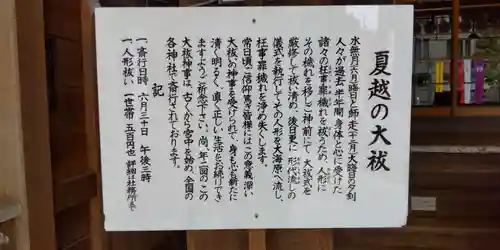 夏越の大祓
水無月(六月)晦日と師走(十二月)大晦日の夕刻
人々が過去半年間身体と心に受けた
諸々の枉事罪穢れを祓うため、人形に
その穢れを移し神前にて、大祓式を
厳修して祓い清め、後日更に形代流しの
儀式を執行してその人形を大海原へ流し、
枉事罪穢れを浄め失くします。
常日頃ご信仰篤き皆様にはこの意義深い
大祓いの神事を受けられて、身も心も新たに
清く明るく、直く正しい生活をお締りでき
ますようご祈念下さい。尚、年二回のこの
大祓神事は、古くから宮中を始め、全国の
各神社で斎行されております。
記
一、斎行日時 六月三十日 午後三時
一、人形祓い 一世帯 五百円也 詳細は社務所まで